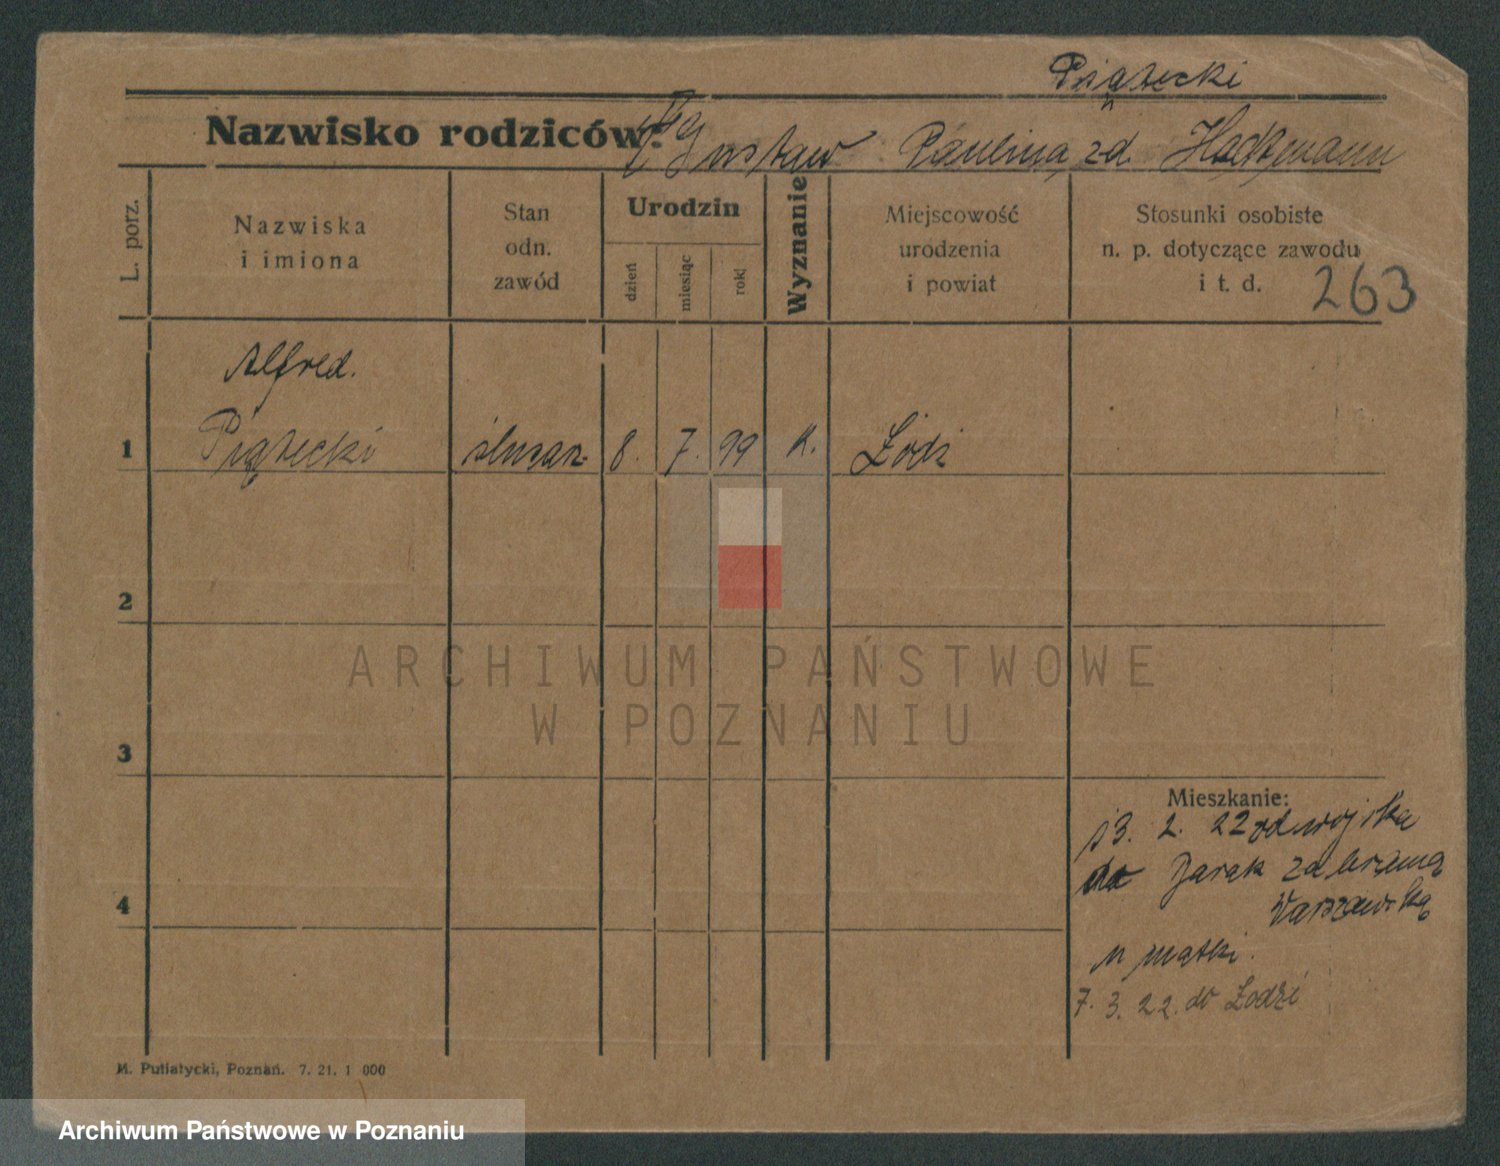 Piątecki
Nazwisko rodziców:
Gustaw Paulina zd. Hackmann
L. porz.
Nazwiska
i imiona
Stan
odn.
zawód
Urodzin
dzień
miesiąc
rok
Wyznanie
Miejscowość
urodzenia
i powiat
Stosunki osobiste
n. p. dotyczące zawodu
i t. d.
263
Alfred.
1 Piątecki ślusarz 8. 7. 99 K. Łódź
2
3
4
Mieszkanie:
13. 2. 22 od wojska
do Barak za bramą
Warszawską
u matki.
7. 3. 22. do Łodzi
M. Putiatycki, Poznań. 7. 21. 1 000
ARCHIWUM PAŃSTWOWE
W POZNANIU
Archiwum Państwowe w Poznaniu